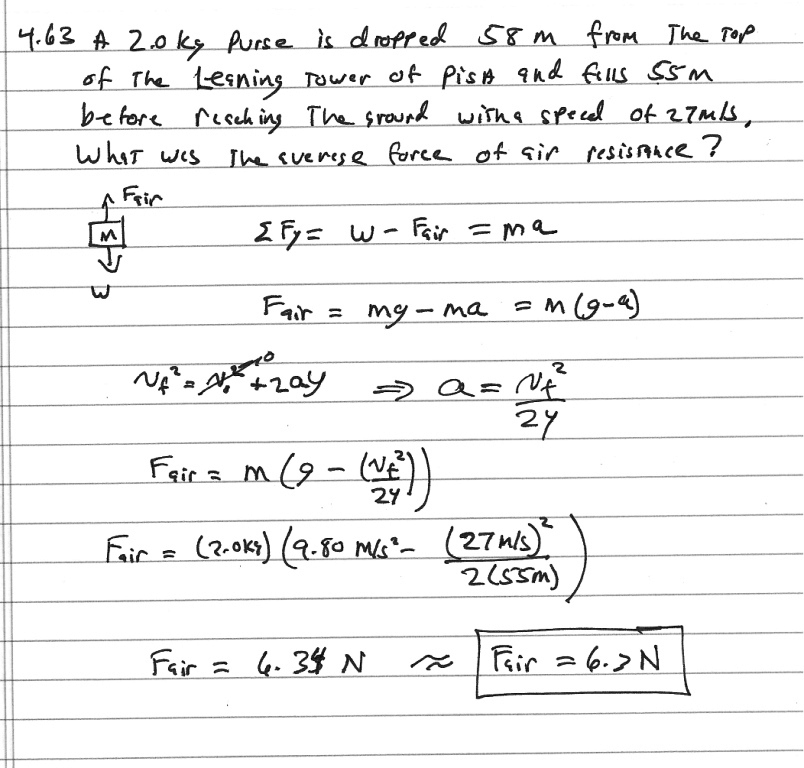 4.63 A 2.0 kg Purse is dropped 58 m from The Top
of The Leaning Tower of Pisa and falls 55 m
before reaching The ground with a speed of 27 m/s,
What was The average force of air resistance?
Fair
M
W
ΣFy = W - Fair = ma
Fair = mg - ma = m(g-a)
Vf² = V₀²→0 + 2ay ⇒ a = Vf²/2y
Fair = m(g - (Vf²/2y))
Fair = (2.0kg)(9.80 m/s² - (27m/s)²/2(55m))
Fair = 6.34 N ≈ Fair = 6.3 N